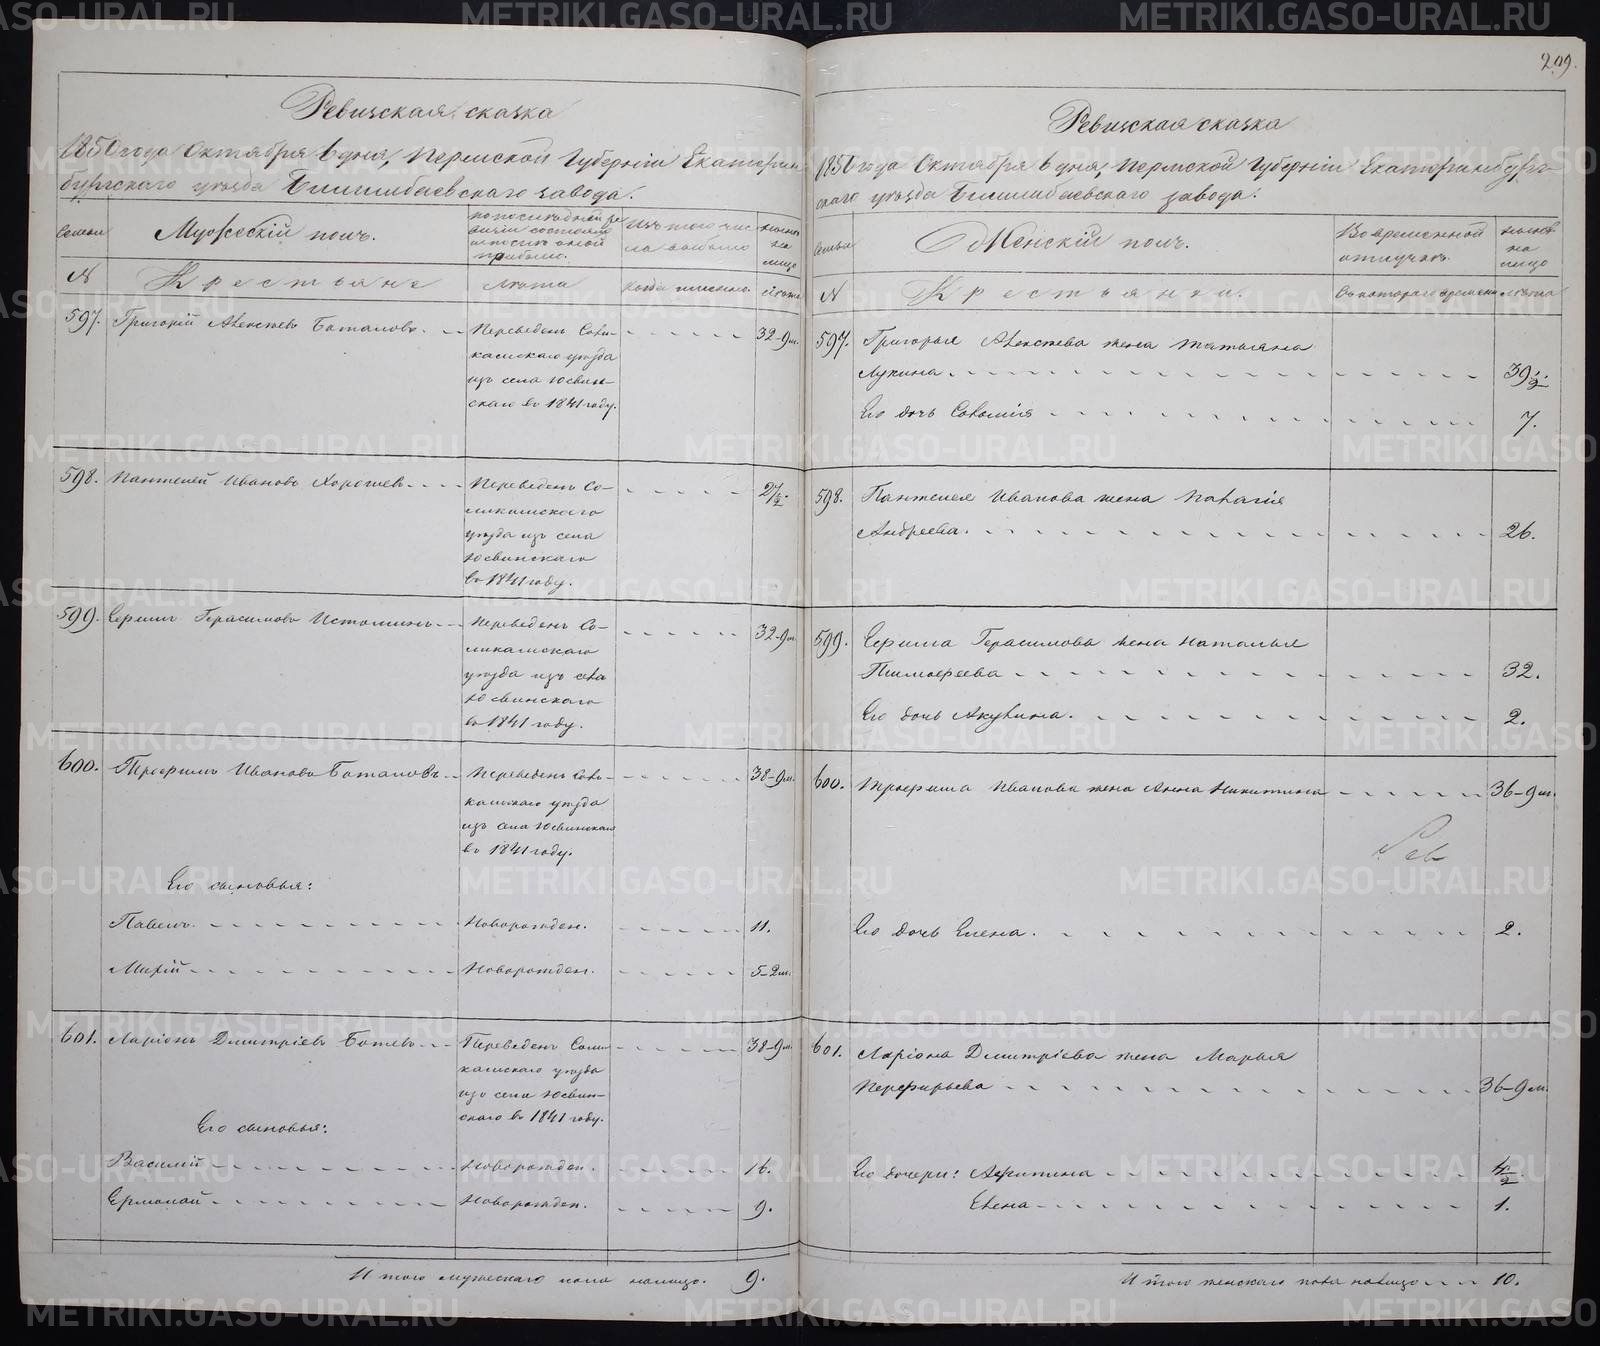 209.
Ревизская сказка
1850 года Октября 6 дня, Пермской Губерніи Екатерин-
бургскаго уезда Билимбаевскаго завода.
Семьи
Мужескій полъ.
по последней ре
визіи состояло
и после оной
прибыло.
Изъ того чис
ла выбыло
ныне
на
лицо
N
Крестьяне
Лета
Когда именно.
Лета
597. Григорій Алексеевъ Боталовъ. Переведенъ Соли- 32-9м.
камскаго уезда
изъ села Юсвин-
скаго въ 1841 году.
598. Пантелей Ивановъ Хорошевъ Переведенъ Со- 27 1/2.
ликамскаго
уезда изъ села
Юсвинскаго
въ 1841 году.
599. Ефимъ Герасимовъ Истоминъ Переведенъ Со- 32-9м
ликамскаго
уезда изъ села
Юсвинскаго
въ 1841 году.
600. Трофимъ Ивановъ Боталовъ Переведенъ Соли- 38-9м.
камскаго уезда
изъ села Юсвинскаго
въ 1841 году.
Его сыновья:
Павелъ Новорожден. 11.
Новорожден. 5-2м.
601. Ларіонъ Дмитріевъ Ботевъ Переведенъ Соли- 38-9м.
камскаго уезда
изъ села Юсвин-
скаго въ 1841 году.
Его сыновья:
Василій Новорожден. 16.
Ермолай Новорожден. 9.
Итого мужескаго пола налицо. 9.
Ревизская сказка
1850 года Октября 6 дня, Пермской Губерніи Екатеринбург-
скаго уезда Билимбаевскаго завода.
Семьи
Женскій полъ.
Во временной
отлучке.
ныне
на
лицо
N
Крестьянки.
Съ котораго времени
Лета
597. Григорья Алексеева жена Татьяна
Лукина 39 1/2
Его дочь Соломія 7.
598. Пантелея Иванова жена Палагія
Андреева. 26.
599. Ефима Герасимова жена Наталья
Тимофеева 32.
Его дочь Акулина. 2.
600. Трофима Иванова жена Анна Никитина 36-9м.
Рев
Его дочь Елена. 2.
601. Ларіона Дмитріева жена Марья
Перфирьева 36-9м.
Его дочери: Афитина 4 1/2
Елена 1.
Итого женскаго пола налицо 10.
METRIKI.GASO-URAL.RU